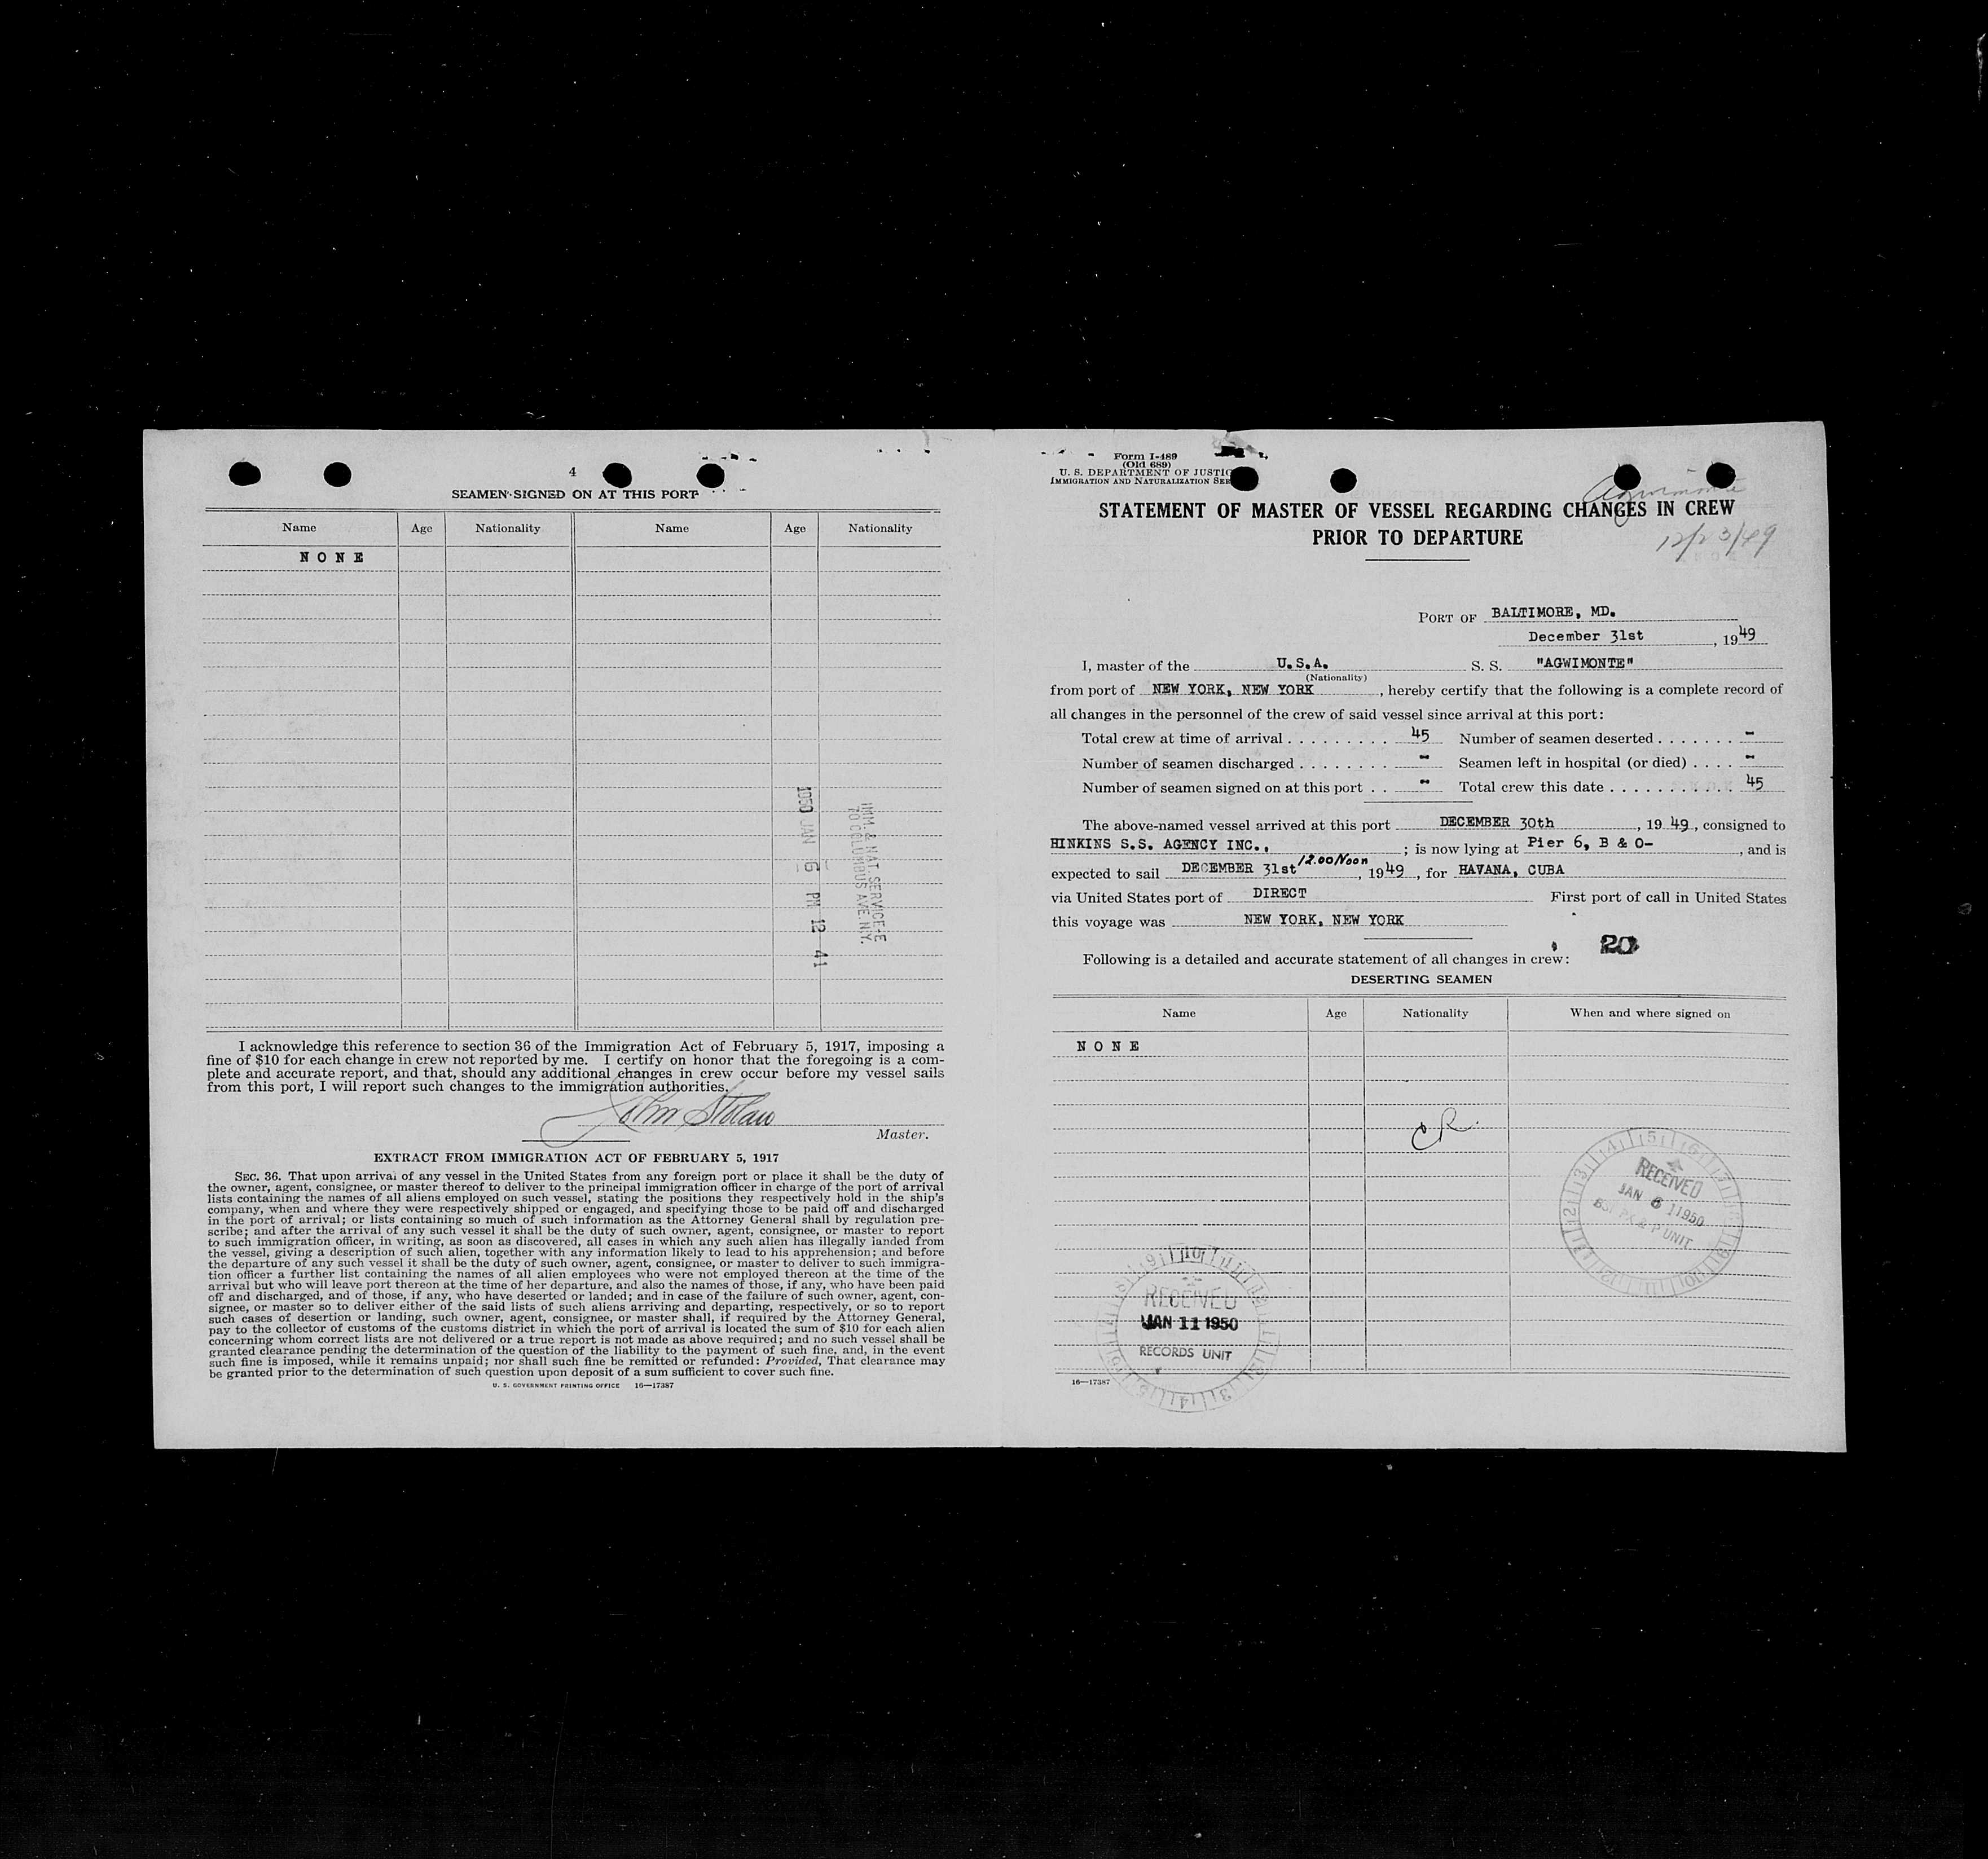 4
SEAMEN SIGNED ON AT THIS PORT
Name Age Nationality Name Age Nationality
NONE
1950 JAN 6 PM 12 41
IMM. & NAT. SERVICE-E
70 COLUMBUS AVE. N.Y.
I acknowledge this reference to section 36 of the Immigration Act of February 5, 1917, imposing a
fine of $10 for each change in crew not reported by me. I certify on honor that the foregoing is a com-
plete and accurate report, and that, should any additional changes in crew occur before my vessel sails
from this port, I will report such changes to the immigration authorities.
John
Master.
EXTRACT FROM IMMIGRATION ACT OF FEBRUARY 5, 1917
SEC. 36. That upon arrival of any vessel in the United States from any foreign port or place it shall be the duty of
the owner, agent, consignee, or master thereof to deliver to the principal immigration officer in charge of the port of arrival
lists containing the names of all aliens employed on such vessel, stating the positions they respectively hold in the ship's
company, when and where they were respectively shipped or engaged, and specifying those to be paid off and discharged
in the port of arrival; or lists containing so much of such information as the Attorney General shall by regulation pre-
scribe; and after the arrival of any such vessel it shall be the duty of such owner, agent, consignee, or master to report
to such immigration officer, in writing, as soon as discovered, all cases in which any such alien has illegally landed from
the vessel, giving a description of such alien, together with any information likely to lead to his apprehension; and before
the departure of any such vessel it shall be the duty of such owner, agent, consignee, or master to deliver to such immigra-
tion officer a further list containing the names of all alien employees who were not employed thereon at the time of the
arrival but who will leave port thereon at the time of her departure, and also the names of those, if any, who have been paid
off and discharged, and of those, if any, who have deserted or landed; and in case of the failure of such owner, agent, con-
signee, or master so to deliver either of the said lists of such aliens arriving and departing, respectively, or so to report
such cases of desertion or landing, such owner, agent, consignee, or master shall, if required by the Attorney General,
pay to the collector of customs of the customs district in which the port of arrival is located the sum of $10 for each alien
concerning whom correct lists are not delivered or a true report is not made as above required; and no such vessel shall be
granted clearance pending the determination of the question of the liability to the payment of such fine, and, in the event
such fine is imposed, while it remains unpaid; nor shall such fine be remitted or refunded: Provided, That clearance may
be granted prior to the determination of such question upon deposit of a sum sufficient to cover such fine.
U. S. GOVERNMENT PRINTING OFFICE 16—17387
Form I-489
(Old 689)
U. S. DEPARTMENT OF JUSTIC
IMMIGRATION AND NATURALIZATION SER
Agwimonte
STATEMENT OF MASTER OF VESSEL REGARDING CHANGES IN CREW
PRIOR TO DEPARTURE
12/23/49
PORT OF BALTIMORE, MD.
December 31st, 1949
I, master of the U.S.A. S. S. "AGWIMONTE"
(Nationality)
from port of NEW YORK, NEW YORK, hereby certify that the following is a complete record of
all changes in the personnel of the crew of said vessel since arrival at this port:
Total crew at time of arrival . . . . . . . . . 45 Number of seamen deserted . . . . . . . -
Number of seamen discharged . . . . . . . . - Seamen left in hospital (or died) . . . . -
Number of seamen signed on at this port . . - Total crew this date . . . . . . . . . . . 45
The above-named vessel arrived at this port DECEMBER 30th, 19 49, consigned to
HINKINS S.S. AGENCY INC., ; is now lying at Pier 6, B & O-, and is
expected to sail DECEMBER 31st 12.00 Noon, 1949, for HAVANA, CUBA
via United States port of DIRECT First port of call in United States
this voyage was NEW YORK, NEW YORK
20
Following is a detailed and accurate statement of all changes in crew:
DESERTING SEAMEN
Name Age Nationality When and where signed on
NONE
CR
RECEIVED
JAN 6 1950
P UNIT
RECEIVED
JAN 11 1950
RECORDS UNIT
16—17387